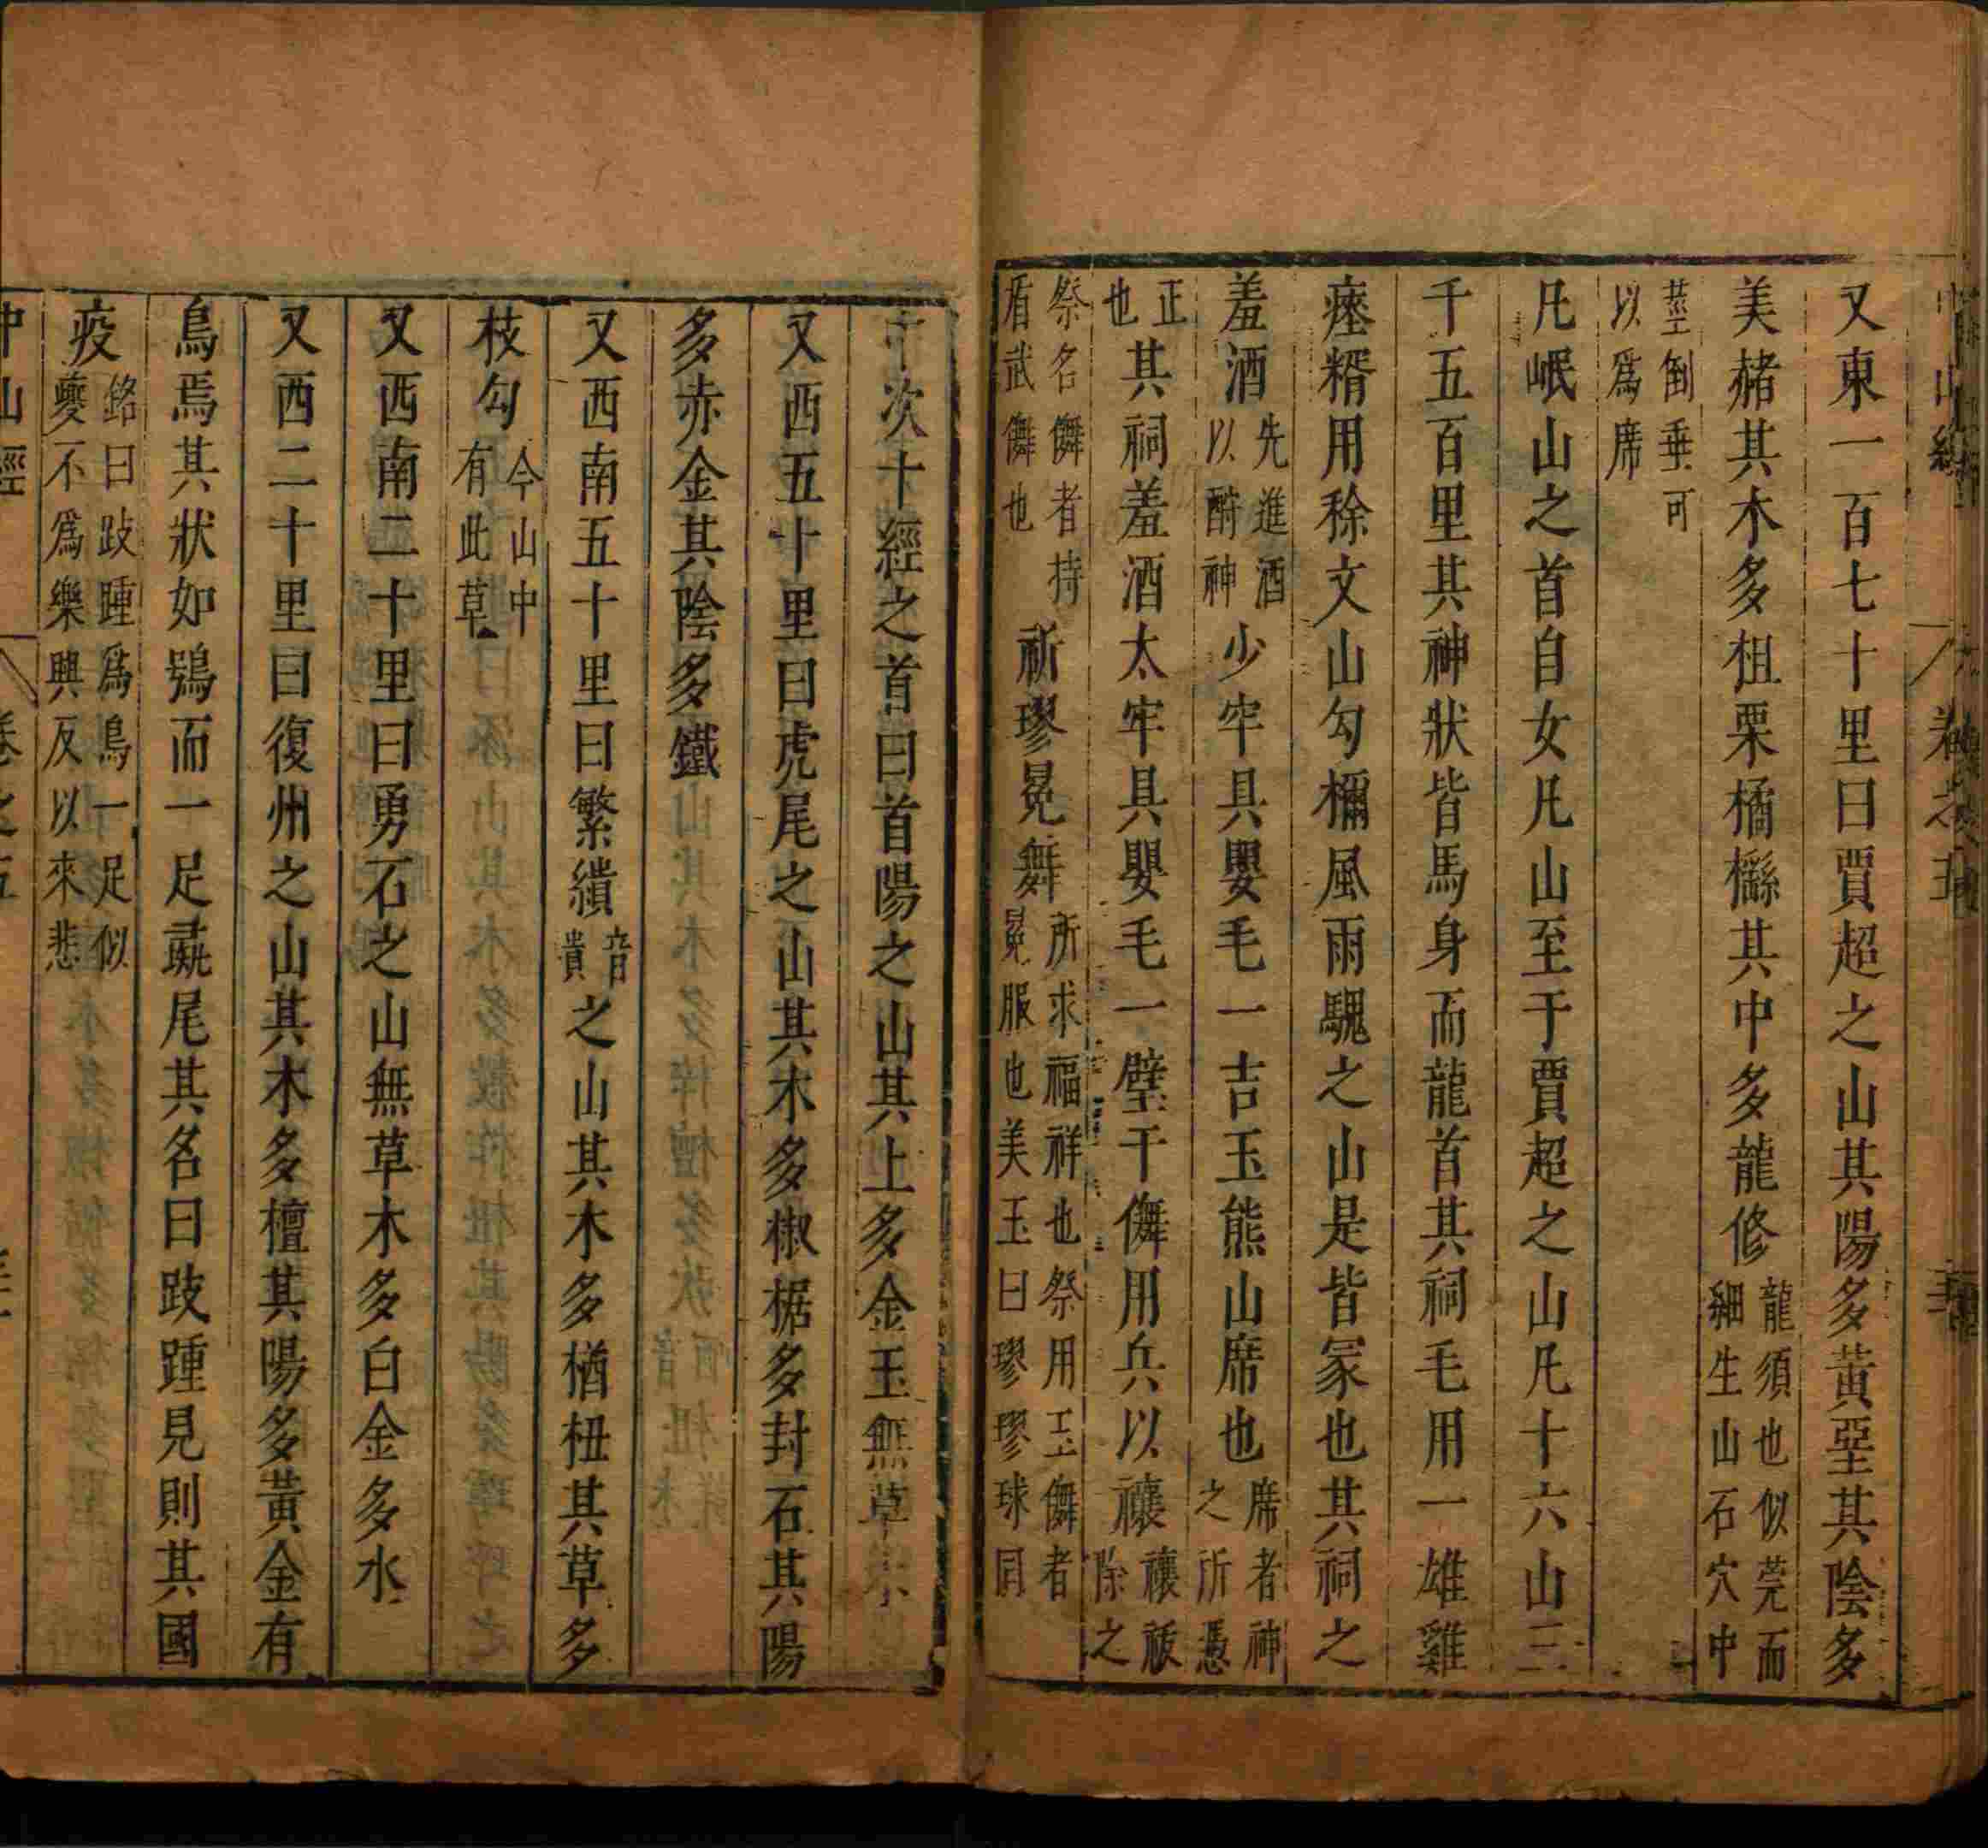 又東一百七十里曰賈超之山其陽多黃堊其陰多
美赭其木多柤栗橘櫾其中多龍修龍須也似莞而細生山石穴中
莖倒垂可以爲席
凡岷山之首自女凡山至于賈超之山凡十六山三
千五百里其神狀皆馬身而龍首其祠毛用一雄雞
瘞糈用稌文山勾檷風雨騩之山是皆冢也其祠之
羞酒先進酒以酹神少牢具嬰毛一吉玉熊山席也席者神之所憑
正也其祠羞酒太牢具嬰毛一璧干儛用兵以禳禳祓除之
祭名儛者持盾武儛也祈璆冕舞所求福祥也祭用玉儛者冕服也美玉曰璆璆球同
中次十經之首曰首陽之山其上多金玉無草木
又西五十里曰虎尾之山其木多椒椐多封石其陽
多赤金其陰多鐵
又西南五十里曰繁繢音貴之山其木多楢杻其草多
枝勾今山中有此草
又西南二十里曰勇石之山無草木多白金多水
又西二十里曰復州之山其木多檀其陽多黃金有
鳥焉其狀如鴞而一足彘尾其名曰跂踵見則其國
疫銘曰跂踵爲鳥一足似夔不爲樂興反以來悲
中山經 卷之五